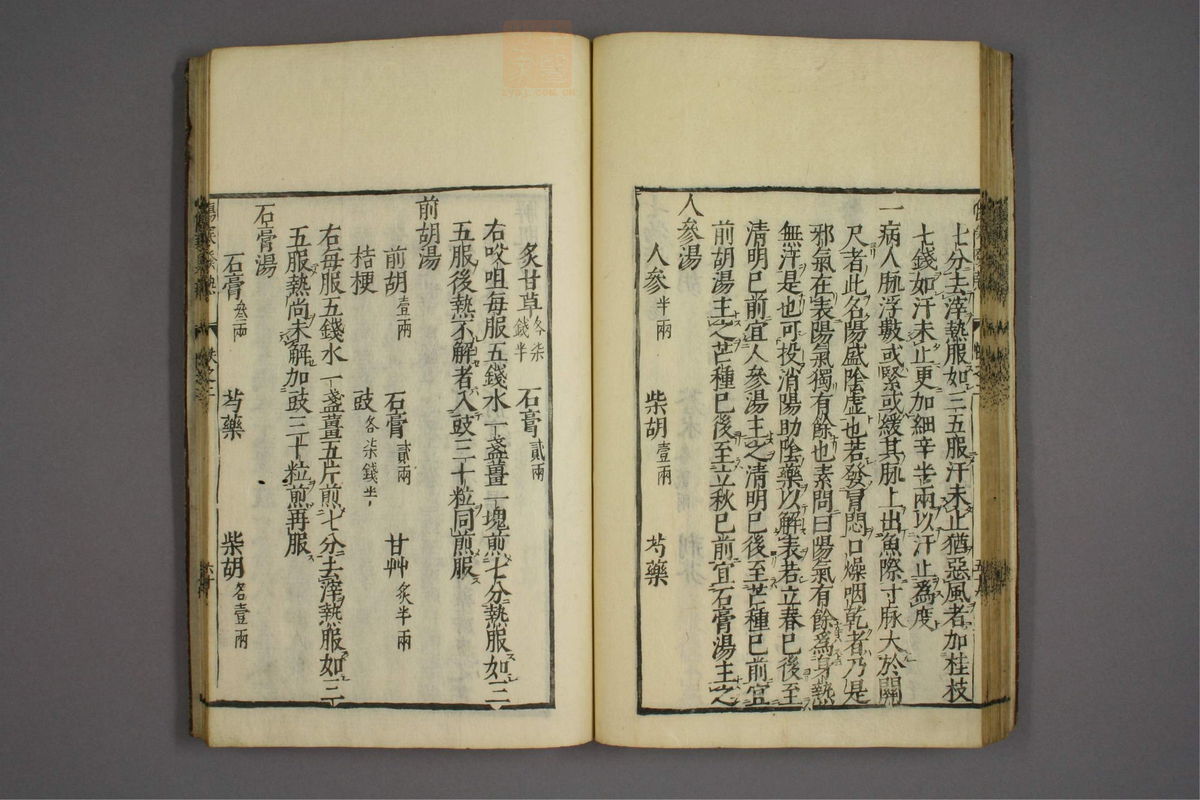 七分去滓熱服如三五服汗未止猶惡風者加桂枝
七錢如汗未止更加細辛半兩以汗止為度
一病人脉浮數或緊或緩其脉上出魚際寸脉大於關
尺者此名陽盛陰虛也若發冒悶口燥咽乾者乃是
邪氣在表陽氣獨有餘也素問曰陽氣有餘為身熱
無汗是也可投消陽助陰藥以解表若立春已後至
清明已前宜人參湯主之清明已後至芒種已前宜
前胡湯主之芒種已後至立秋已前宜石膏湯主之
人參湯
人參半兩 柴胡壹兩 芍藥
炙甘草各柒錢半 石膏貳兩
右㕮咀每服五錢水一盞薑一塊煎七分熱服如三
五服後熱不解者入豉三十粒同煎服
前胡湯
前胡壹兩 石膏貳兩 甘艸炙半兩
桔梗 豉各柒錢半
右每服五錢水一盞薑五片煎七分去滓熱服如三
五服熱尚未解加豉三十粒煎再服
石膏湯
石膏叁兩 芍藥 柴胡各壹兩